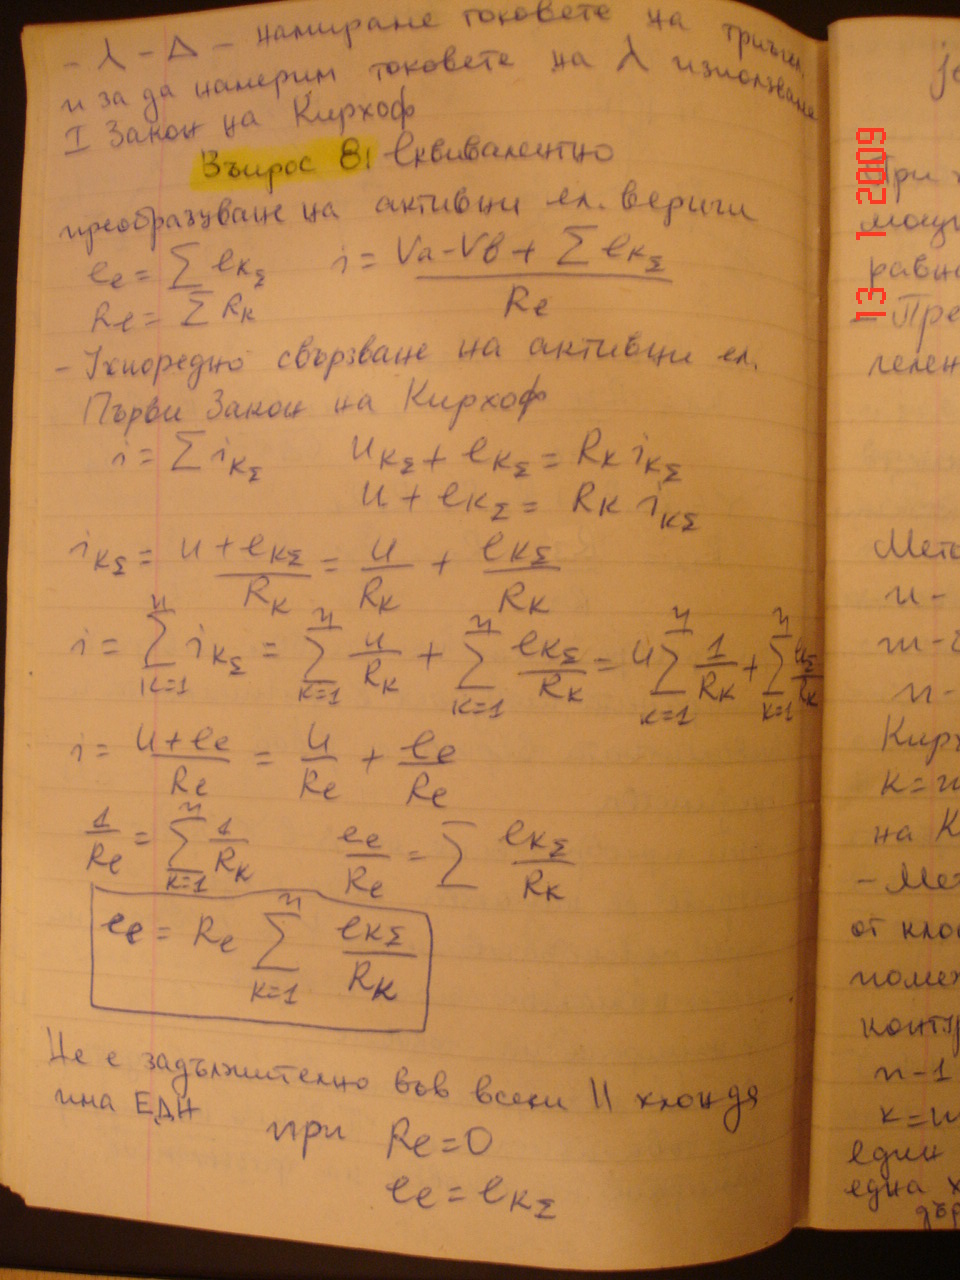 - λ - Δ - намиране токовете на триъгъл.
и за да намерим токовете на λ използваме
I Закон на Кирхоф
Въпрос 8: Еквивалентно
преобразуване на активни ел. вериги
ee = Σ eKΣ i = (Va - Vb + Σ eKΣ) / Re
Re = Σ RK
- Успоредно свързване на активни ел.
Първи Закон на Кирхоф
i = Σ iKΣ uKΣ + eKΣ = RK iKΣ
u + eKΣ = RK iKΣ
iKΣ = (u + eKΣ) / RK = u / RK + eKΣ / RK
i = Σ(K=1..n) iKΣ = Σ(K=1..n) u / RK + Σ(K=1..n) eKΣ / RK = u Σ(K=1..n) 1 / RK + Σ(K=1..n) eKΣ / RK
i = (u + ee) / Re = u / Re + ee / Re
1 / Re = Σ(K=1..n) 1 / RK ee / Re = Σ eKΣ / RK
ee = Re Σ(K=1..n) eKΣ / RK
Не е задължително във всеки || клон да
има ЕДН при Re = 0
ee = eKΣ
13 1 2009
При
равно
- Пре
n -
m -
n -
Кирх
на К
- Мет
от кло
конту
n - 1
един
една х